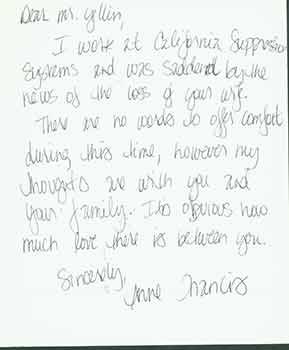 Dear Mr. Yellin,
I work at California Suppression
Systems and was saddend by the
news of the loss of your wife.
There are no words to offer comfort
during this time, however my
thoughts are with you and
your family. Its obvious how
much love there is between you.
Sincerely,
Anne Francis